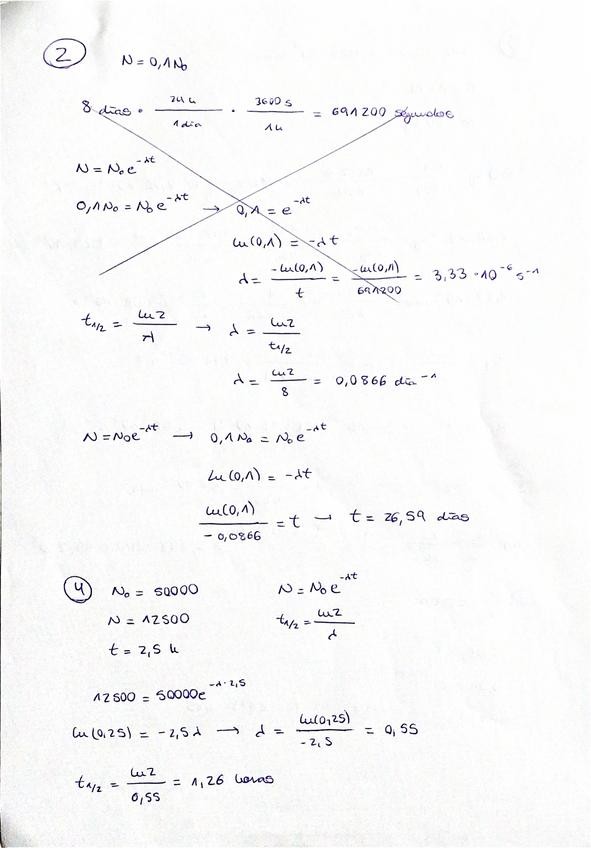 2
N = 0,1 N₀
8 días · 24 h / 1 día · 3600 s / 1 h = 691200 segundos
N = N₀e^-λt
0,1 N₀ = N₀e^-λt → 0,1 = e^-λt
ln(0,1) = -λt
λ = -ln(0,1) / t = -ln(0,1) / 691200 = 3,33 · 10^-6 s^-1
t1/2 = ln2 / λ → λ = ln2 / t1/2
λ = ln2 / 8 = 0,0866 día^-1
N = N₀e^-λt → 0,1 N₀ = N₀e^-λt
ln(0,1) = -λt
ln(0,1) / -0,0866 = t → t = 26,59 días
4
N₀ = 50000 N = N₀e^-λt
N = 12500 t1/2 = ln2 / λ
t = 2,5 h
12500 = 50000e^-λ·2,5
ln(0,25) = -2,5λ → λ = ln(0,25) / -2,5 = 0,55
t1/2 = ln2 / 0,55 = 1,26 horas